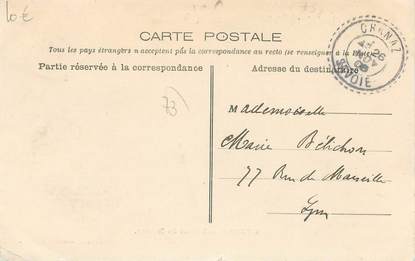 10 €
CARTE POSTALE
Tous les pays étrangers n'acceptent pas la correspondance au recto (se renseigner à la Poste)
Partie réservée à la correspondance
Adresse du destinataire
SAVOIE
26
73)
Mademoiselle
Marie
77 Rue de Marseille
Lyon